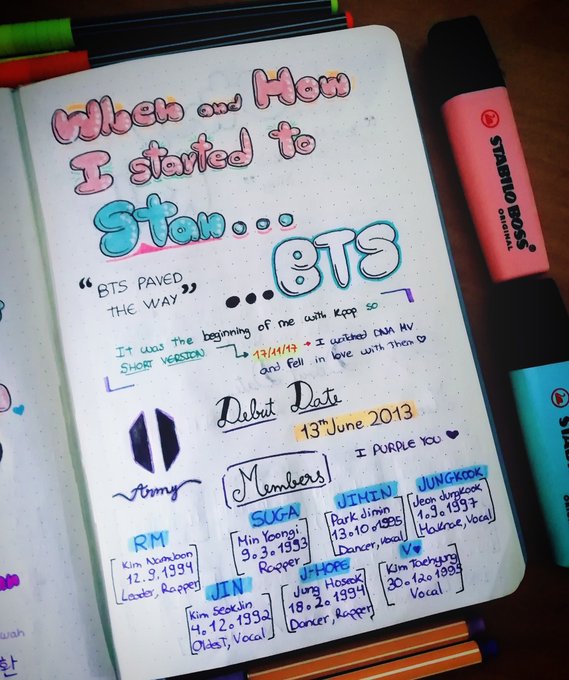 When and How
I started to
Stan...
...BTS
“BTS PAVED
THE WAY”
It was the beginning of me with Kpop so
SHORT VERSION → 17/11/17 → I watched DNA MV
and fell in love with Them ♡
Debut Date
13th June 2013
I PURPLE YOU ♥
Army
Members
RM
Kim Namjoon
12.9.1994
Leader, Rapper
SUGA
Min Yoongi
9.3.1993
Rapper
JIMIN
Park Jimin
13.10.1995
Dancer, Vocal
JUNGKOOK
Jeon Jungkook
1.9.1997
Maknae, Vocal
JIN
Kim Seokjin
4.12.1992
Oldest, Vocal
J-HOPE
Jung Hoseok
18.2.1994
Dancer, Rapper
V♥
Kim Taehyung
30.12.1995
Vocal
wah
환
STABILO BOSS
ORIGINAL
STAB